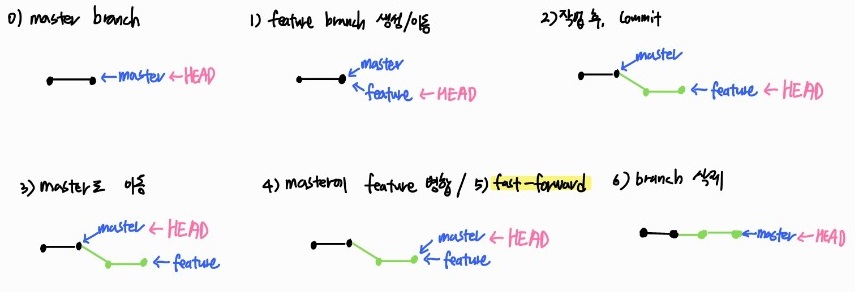 0) master branch
← master ← HEAD
1) feature branch 생성/이동
master
feature ← HEAD
2) 작업 후, commit
master
← feature ← HEAD
3) master로 이동
master ← HEAD
← feature
4) master에 feature 병합 / 5) fast-forward
master ← HEAD
← feature
6) branch 삭제
← master ← HEAD